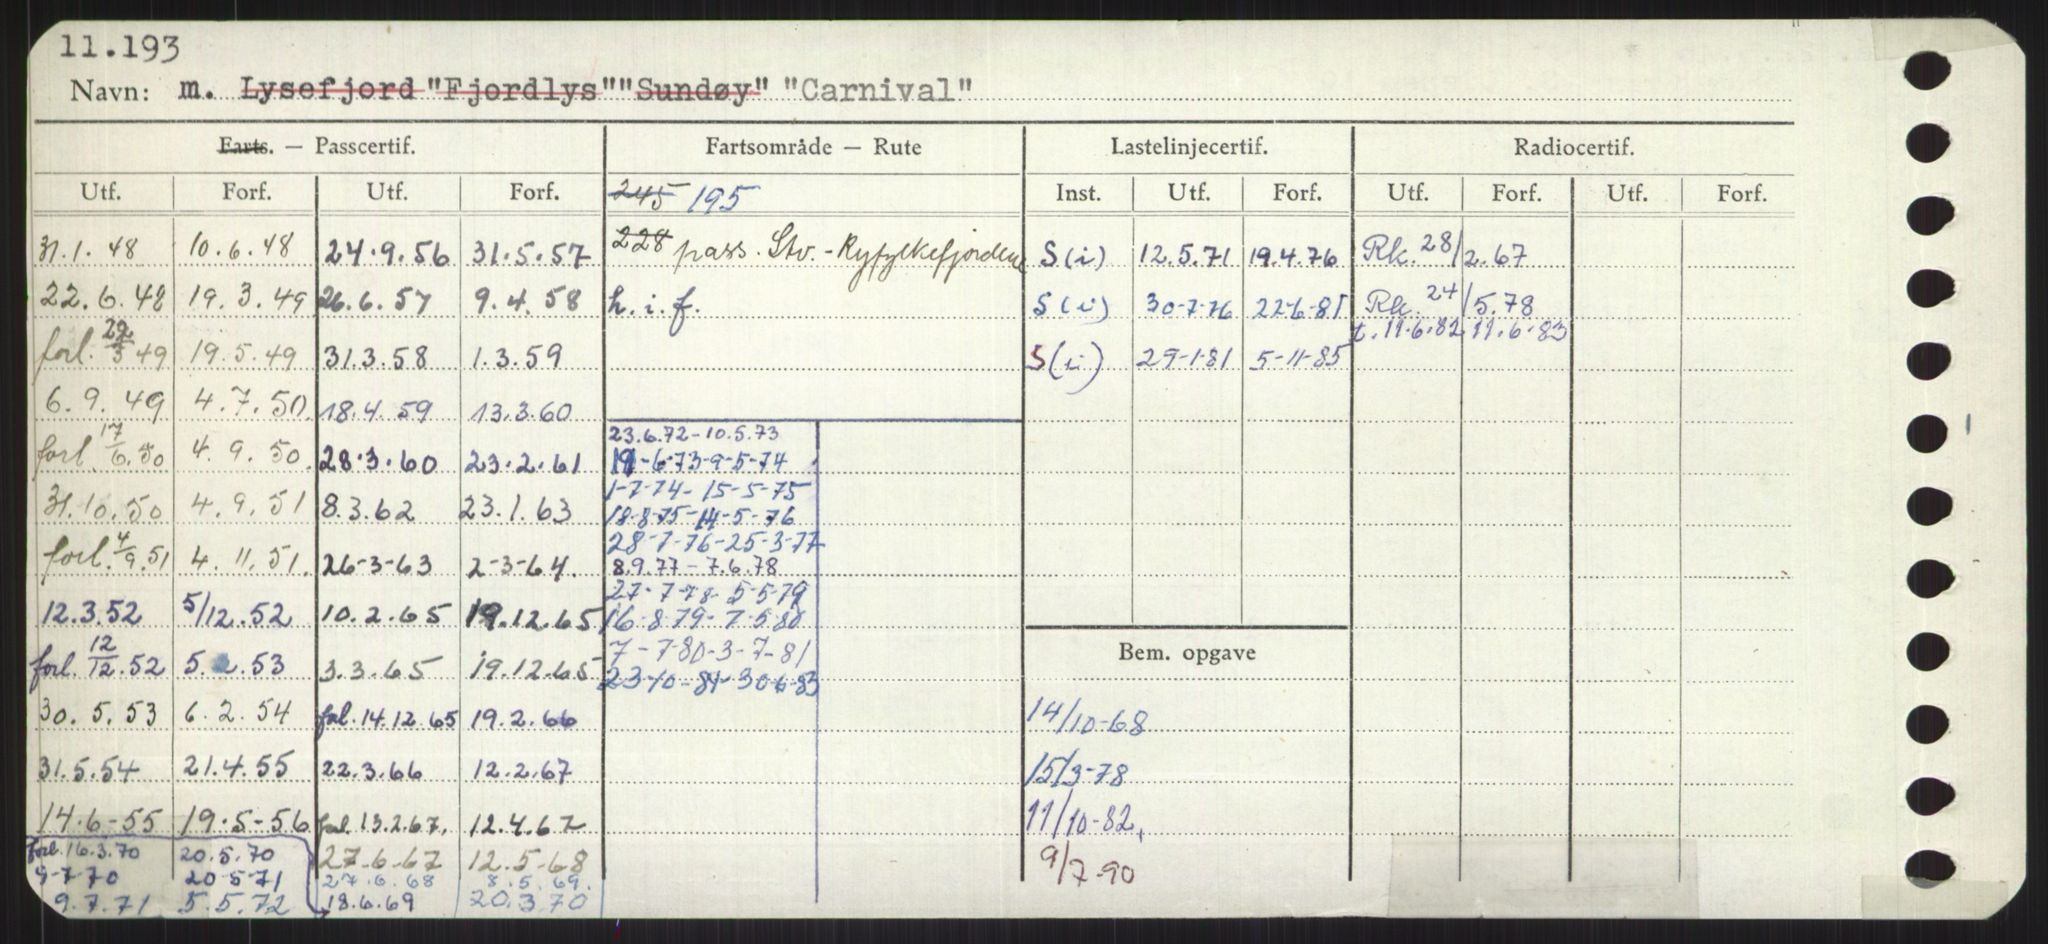 11.193
Navn: m. Lysefjord "Fjordlys" "Sundøy" "Carnival"
Farts. — Passcertif. Fartsområde — Rute Lastelinjecertif. Radiocertif.
Utf. Forf. Utf. Forf. 245 195 Inst. Utf. Forf. Utf. Forf. Utf. Forf.
31.1.48 10.6.48 24.9.56 31.5.57 228 pass. Stv. - Ryfylkefjordene S(i) 12.5.71 19.4.76 Rk. 28/2.67
22.6.48 19.3.49 26.6.57 9.4.58 h.i.f. S(i) 30-7-76 22-6-81 Rk. 24/5.78
t. 11.6.82 11.6.83
forl. 29/3 49 19.5.49 31.3.58 1.3.59 S(i) 29-1-81 5-11-85
6.9.49 4.7.50 18.4.59 13.3.60
23.6.72-10.5.73
forl. 17/6.50 4.9.50. 28.3.60 23.2.61 19-6-73-9-5-74
1-7-74-15-5-75
31.10.50 4.9.51 8.3.62 23.1.63 18-8-75-14-5-76
28-7-76-25-3-77
forl. 4/9.51 4.11.51. 26-3-63 2-3-64. 8.9.77-7.6.78
27-7-78-5-5-79
12.3.52 5/12.52 10.2.65 19.12.65 16-8-79-7-5-80
7-7-80-3-7-81
Bem. opgave
forl. 12/12.52 5.2.53 3.3.65 19.12.65 23-10-81-30-6-83
30.5.53 6.2.54 forl. 14.12.65 19.2.66 14/10-68
31.5.54 21.4.55 22.3.66 12.2.67 15/3-78
14.6-55 19.5-56 forl. 13.2.67. 12.4.67 11/10-82.
forl. 16.3.70 20.5.70 27.6.67 12.5.68 9/7-90
9-7-70 20-5-71 27.6.68 8.5.69.
9.7.71 5.5.72 18.6.69 20.3.70